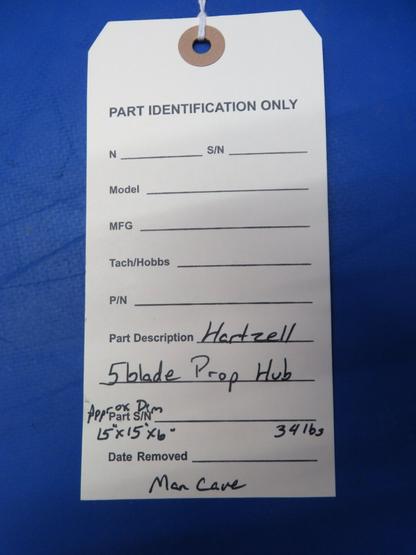 PART IDENTIFICATION ONLY
N ________ S/N ________
Model ________
MFG ________
Tach/Hobbs ________
P/N ________
Part Description Hartzell
5 blade Prop Hub
Approx Dim
Part S/N ________
15"x15"x6" 34 lbs
Date Removed ________
Man Cave